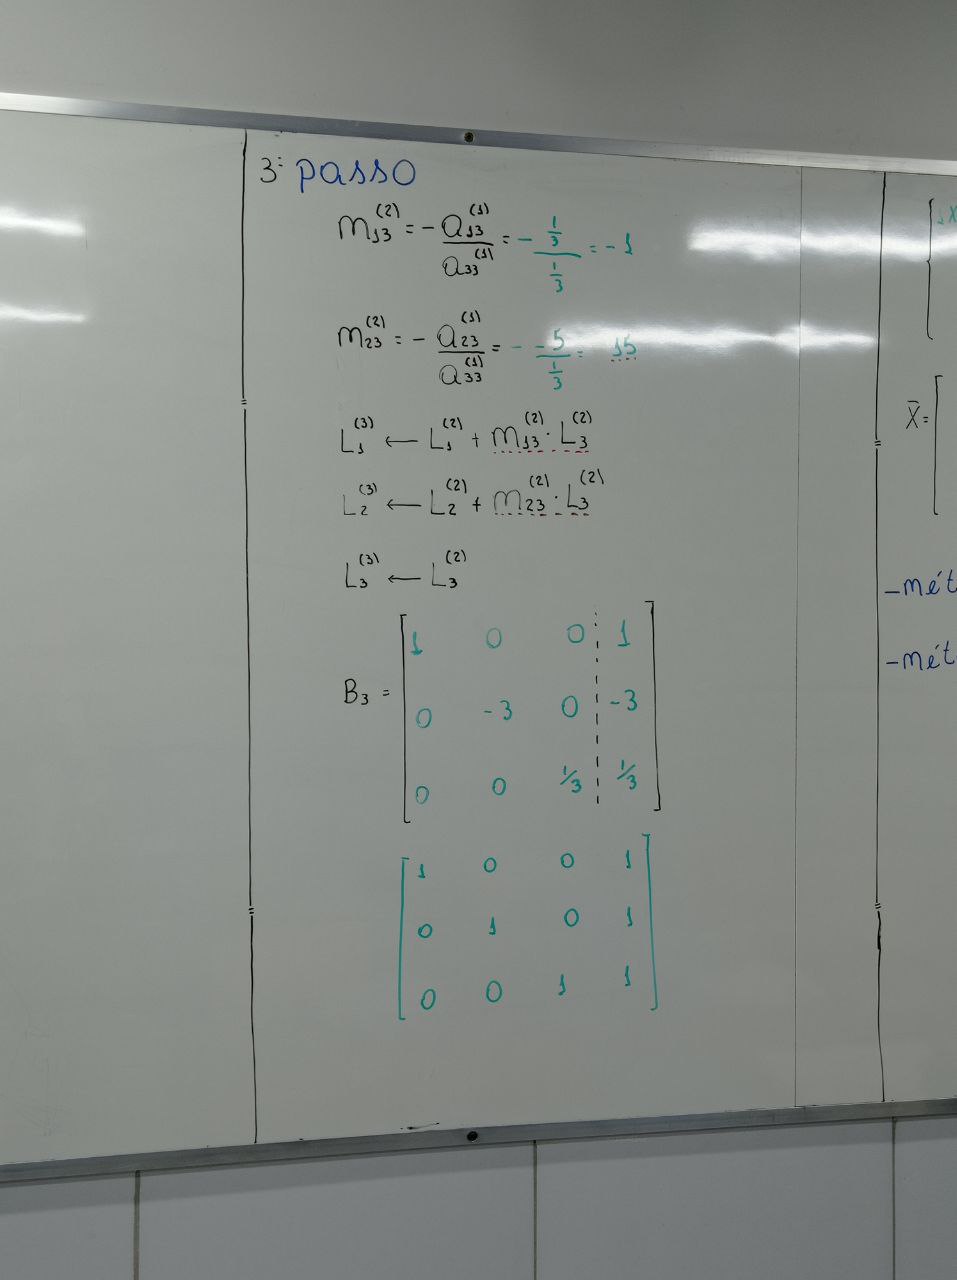 3º passo
m₁₃⁽²⁾ = - a₁₃⁽¹⁾ / a₃₃⁽¹⁾ = - (1/3) / (1/3) = -1
m₂₃⁽²⁾ = - a₂₃⁽¹⁾ / a₃₃⁽¹⁾ = - -5 / (1/3) = 15
L₁⁽³⁾ ← L₁⁽²⁾ + m₁₃⁽²⁾ · L₃⁽²⁾
L₂⁽³⁾ ← L₂⁽²⁾ + m₂₃⁽²⁾ · L₃⁽²⁾
L₃⁽³⁾ ← L₃⁽²⁾
1 0 0 1
B₃ = 0 -3 0 -3
0 0 1/3 1/3
1 0 0 1
0 1 0 1
0 0 1 1
X̄ =
-mét
-mét